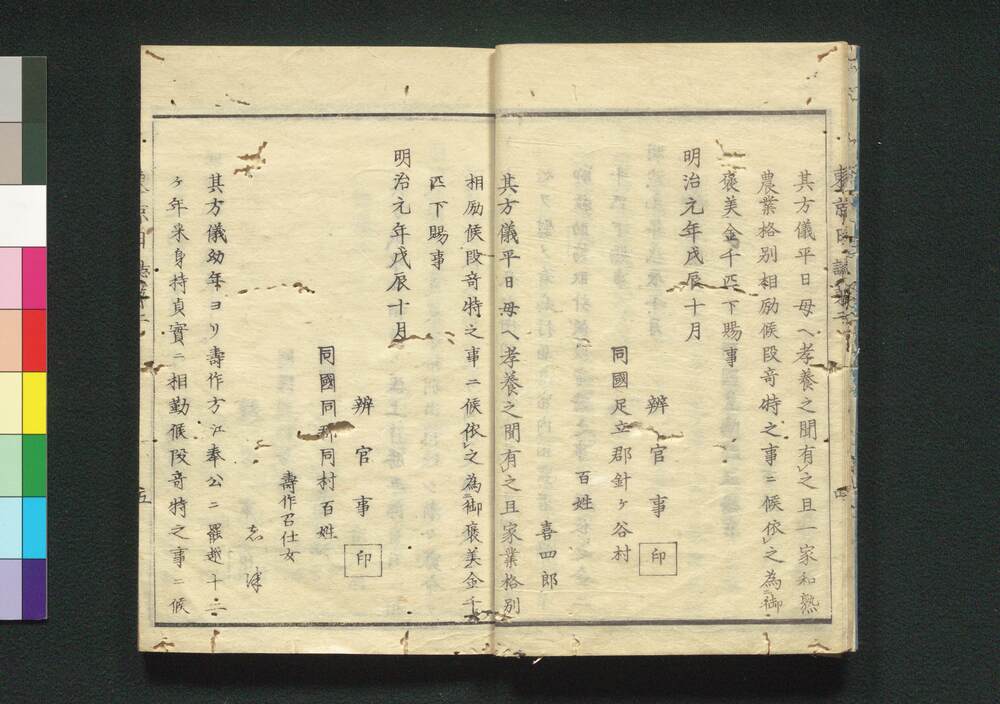 其方儀平日母ヘ孝養之聞有之且一家和熟
農業格別相励候段奇特之事ニ候依之為御
褒美金千匹下賜事
明治元年戊辰十月
辨官事 印
同國足立郡針ヶ谷村
百姓
喜四郎
其方儀平日母ヘ孝養之聞有之且家業格別
相励候段奇特之事ニ候依之為御褒美金千
匹下賜事
明治元年戊辰十月
辨官事 印
同國同郡同村百姓
壽作召仕女
志津
其方儀幼年ヨリ壽作方江奉公ニ罷越十二
ヶ年来身持貞實ニ相勤候段奇特之事ニ候
五